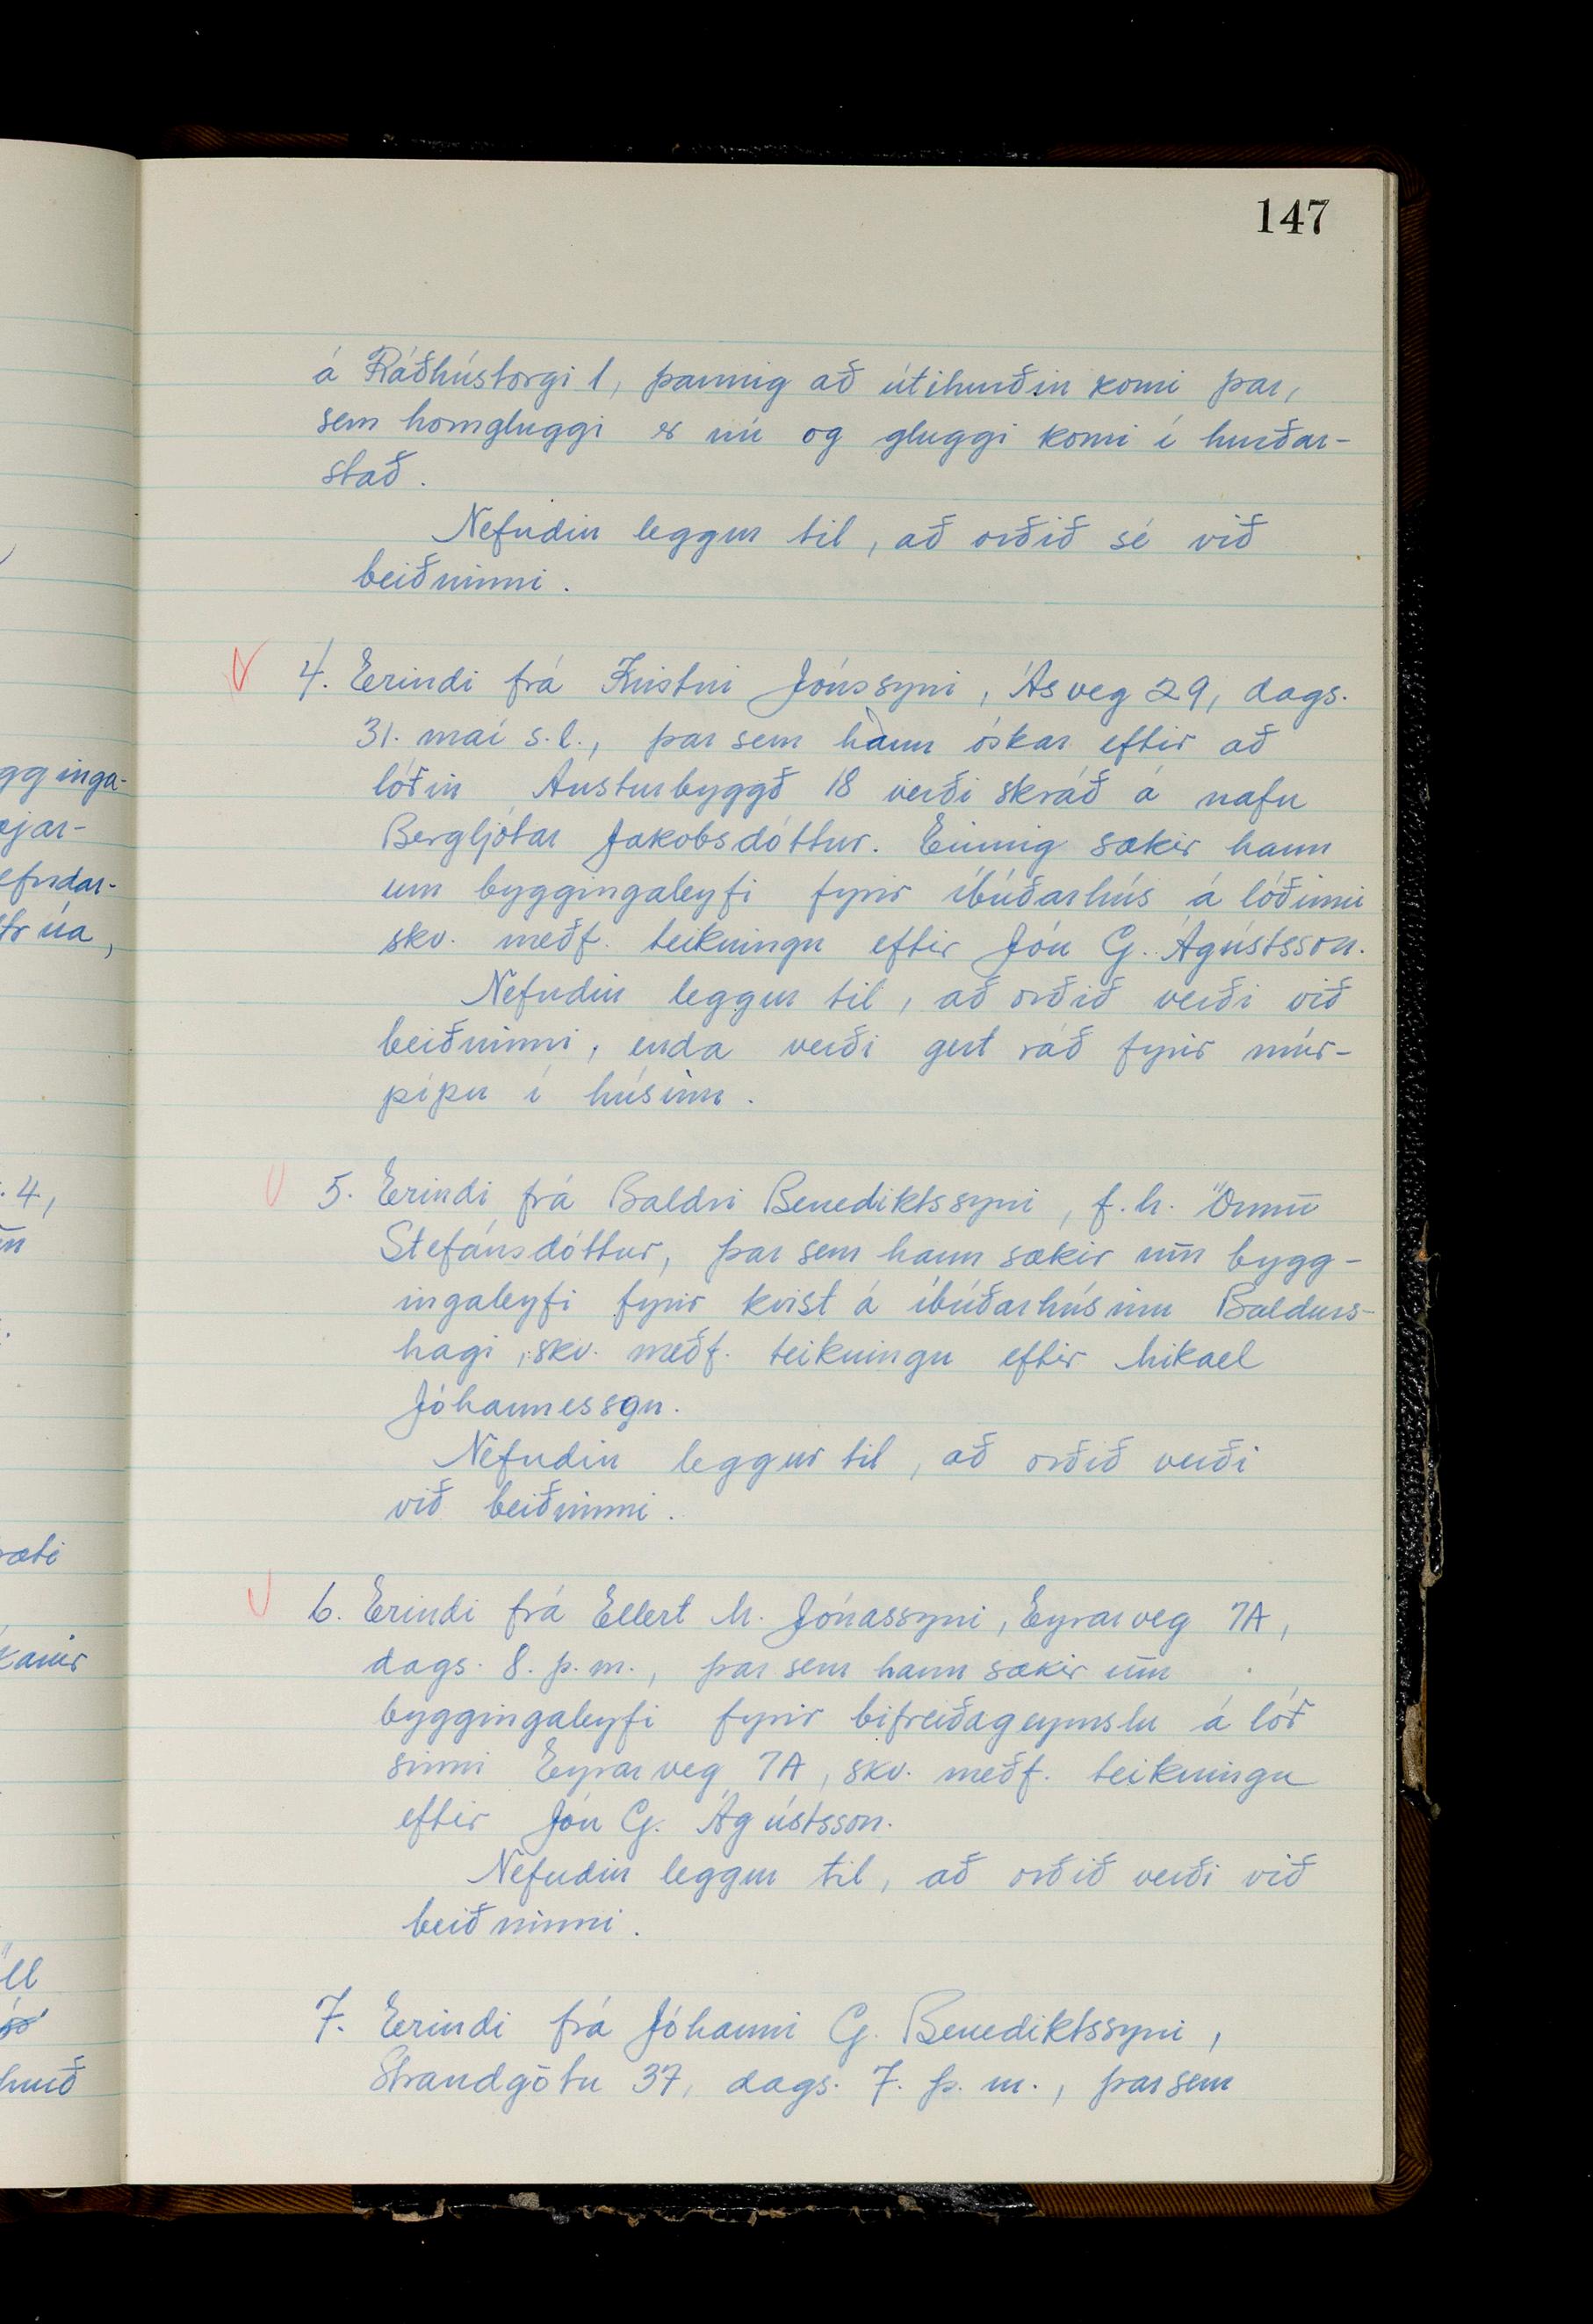 147
á Ráðhústorgi 1, þannig að útihurðin komi þar,
sem horngluggi er nú og gluggi komi í hurðar-
stað.
Nefndin leggur til, að orðið sé við
beiðninni.
4. Erindi frá Kristni Jónssyni, Ásveg 29, dags.
31. maí s.l., þar sem hann óskar eftir að
lóðin Austurbyggð 18 verði skráð á nafn
Bergljótar Jakobsdóttur. Einnig sækir hann
um byggingaleyfi fyrir íbúðarhús á lóðinni
skv. meðf. teikningu eftir Jón G. Ágústsson.
Nefndin leggur til, að orðið verði við
beiðninni, enda verði gert ráð fyrir múr-
pípu í húsinu.
5. Erindi frá Baldri Benediktssyni, f.h. Önnu
Stefánsdóttur, þar sem hann sækir um bygg-
ingaleyfi fyrir kvist á íbúðarhúsinu Baldurs-
hagi, skv. meðf. teikningu eftir Mikael
Jóhannesson.
Nefndin leggur til, að orðið verði
við beiðninni.
6. Erindi frá Ellert M. Jónassyni, Eyrarveg 7A,
dags. 8. þ.m., þar sem hann sækir um
byggingaleyfi fyrir bifreiðageymslu á lóð
sinni Eyrarveg 7A, skv. meðf. teikningu
eftir Jón G. Ágústsson.
Nefndin leggur til, að orðið verði við
beiðninni.
7. Erindi frá Jóhanni G. Benediktssyni,
Strandgötu 37, dags. 7. þ.m., þar sem